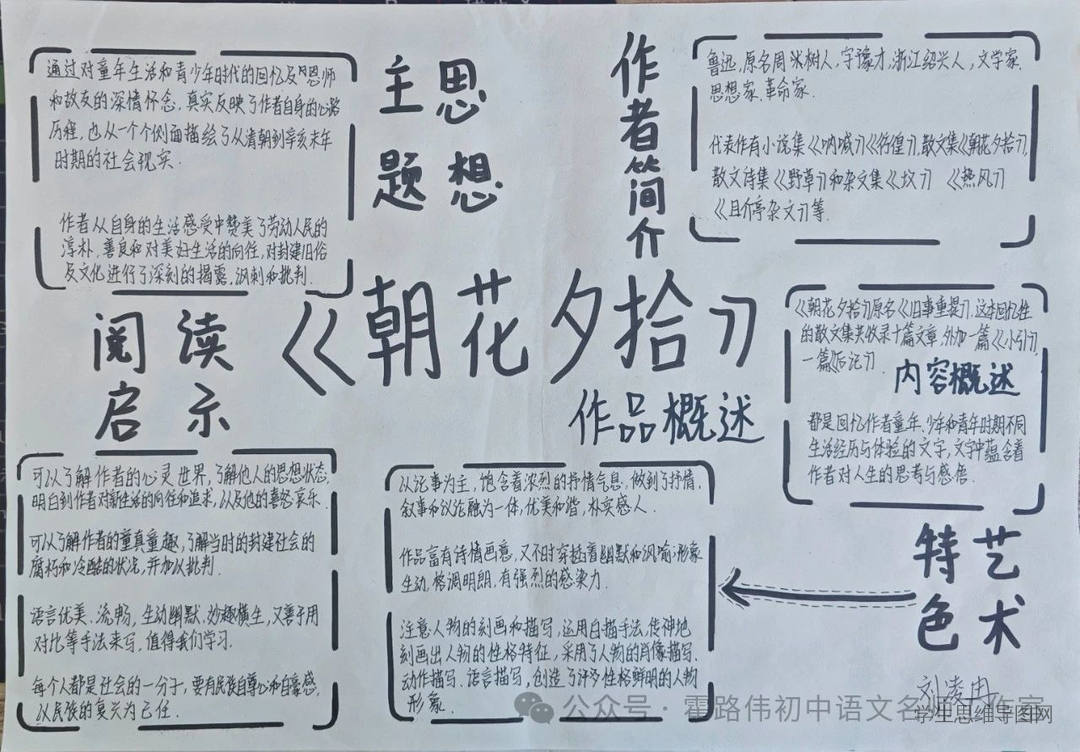 《朝花夕拾》
作品概述
主题
思想
通过对童年生活和青少年时代的回忆及对恩师
和故友的深情怀念，真实反映了作者自身的心路
历程，也从一个个侧面描绘了从清朝到辛亥末年
时期的社会现实.
作者从自身的生活感受中赞美了劳动人民的
淳朴、善良和对美好生活的向往，对封建旧俗
及文化进行了深刻的揭露，讽刺和批判.
作者简介
鲁迅，原名周树人，字豫才，浙江绍兴人，文学家、
思想家、革命家.
代表作有小说集《呐喊》《彷徨》，散文集《朝花夕拾》，
散文诗集《野草》和杂文集《坟》《热风》
《且介亭杂文》等.
《朝花夕拾》原名《旧事重提》，这本回忆性
的散文集共收录十篇文章，外加一篇《小引》，
一篇《后记》.
内容概述
都是回忆作者童年、少年和青年时期不同
生活经历与体验的文字，文字中蕴含着
作者对人生的思考与感悟.
阅读
启示
可以了解作者的心灵世界，了解他人的思想状态，
明白到作者对新生活的向往和追求，以及他的喜怒哀乐.
可以了解作者的童真童趣，了解当时的封建社会的
腐朽和冷酷的状况，并加以批判.
语言优美、流畅，生动幽默，妙趣横生，又善于用
对比等手法来写，值得我们学习.
每个人都是社会的一分子，要有民族自尊心和自豪感，
以民族的复兴为己任.
艺术
特色
从论事为主，饱含着浓烈的抒情气息，做到了抒情、
叙事和议论融为一体，优美和谐，朴实感人.
作品富有诗情画意，又不时穿插着幽默和讽喻，形象
生动，格调明朗，有强烈的感染力.
注意人物的刻画和描写，运用白描手法，传神地
刻画出人物的性格特征，采用了人物的肖像描写、
动作描写、语言描写，创造了许多性格鲜明的人物
形象.
公众号·霍路伟初中语文名
学生思维导图网